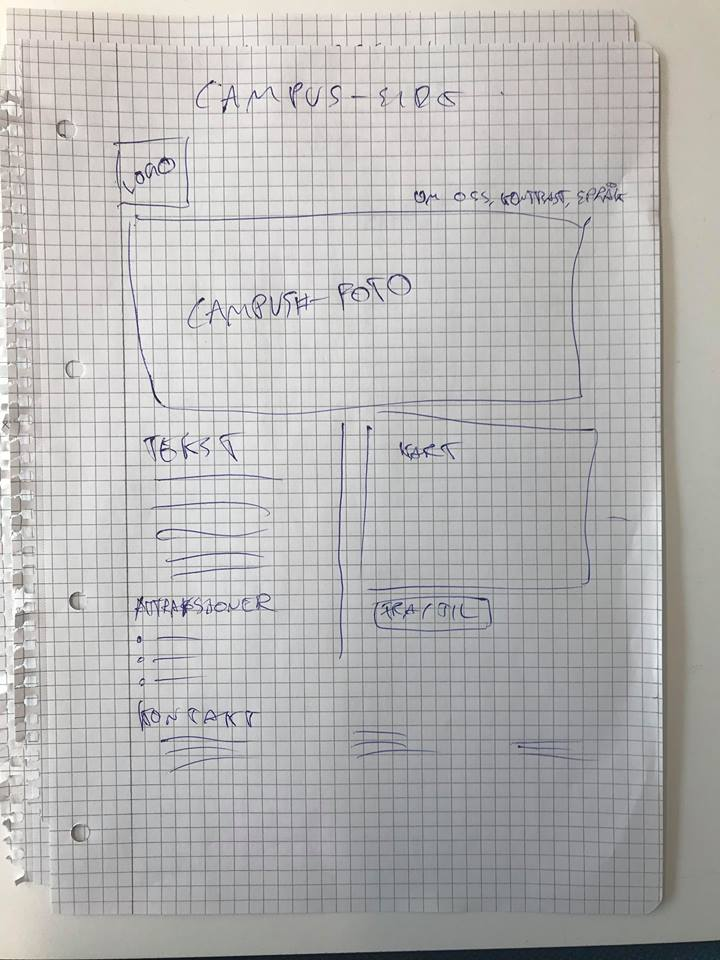 CAMPUS-SIDE
LOGO
OM OSS, KONTRAST, SPRÅK
CAMPUS-FOTO
TEKST
KART
ATTRAKSJONER
FRA/TIL
KONTAKT